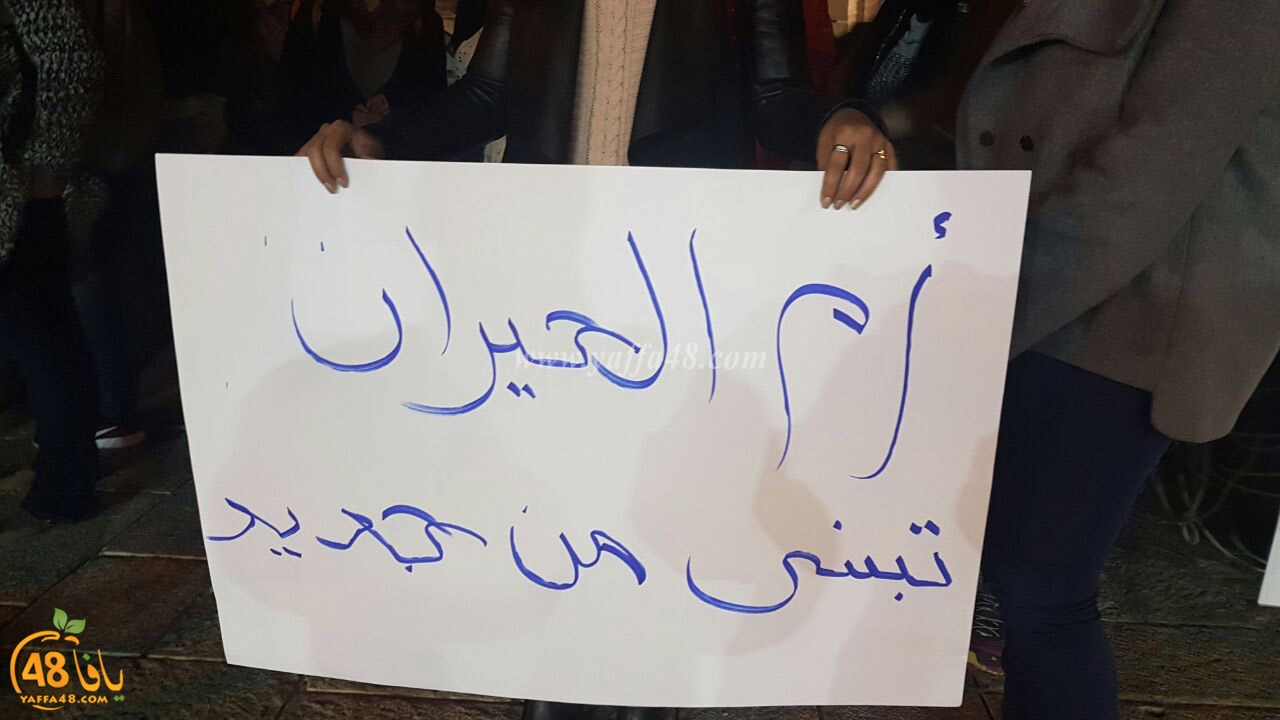 أم الحيران
تبنى من جديد
www.yaffa48.com
48 يافا
YAFFA48.COM